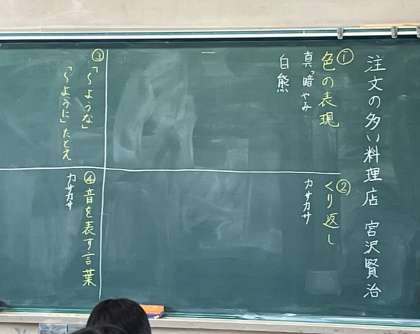 注文の多い料理店 宮沢賢治
①色の表現
真っ暗やみ
白熊
②くり返し
カサカサ
③「〜ような」
「〜ように」たとえ
④音を表す言葉
カサカサ